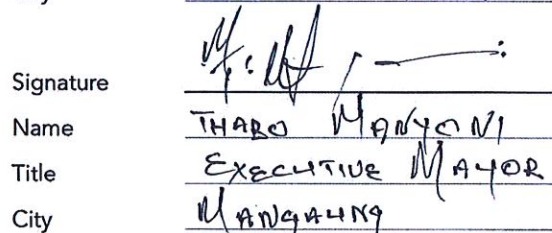 Signature
Name THABO MANYONI
Title EXECUTIVE MAYOR
City MANGAUNG